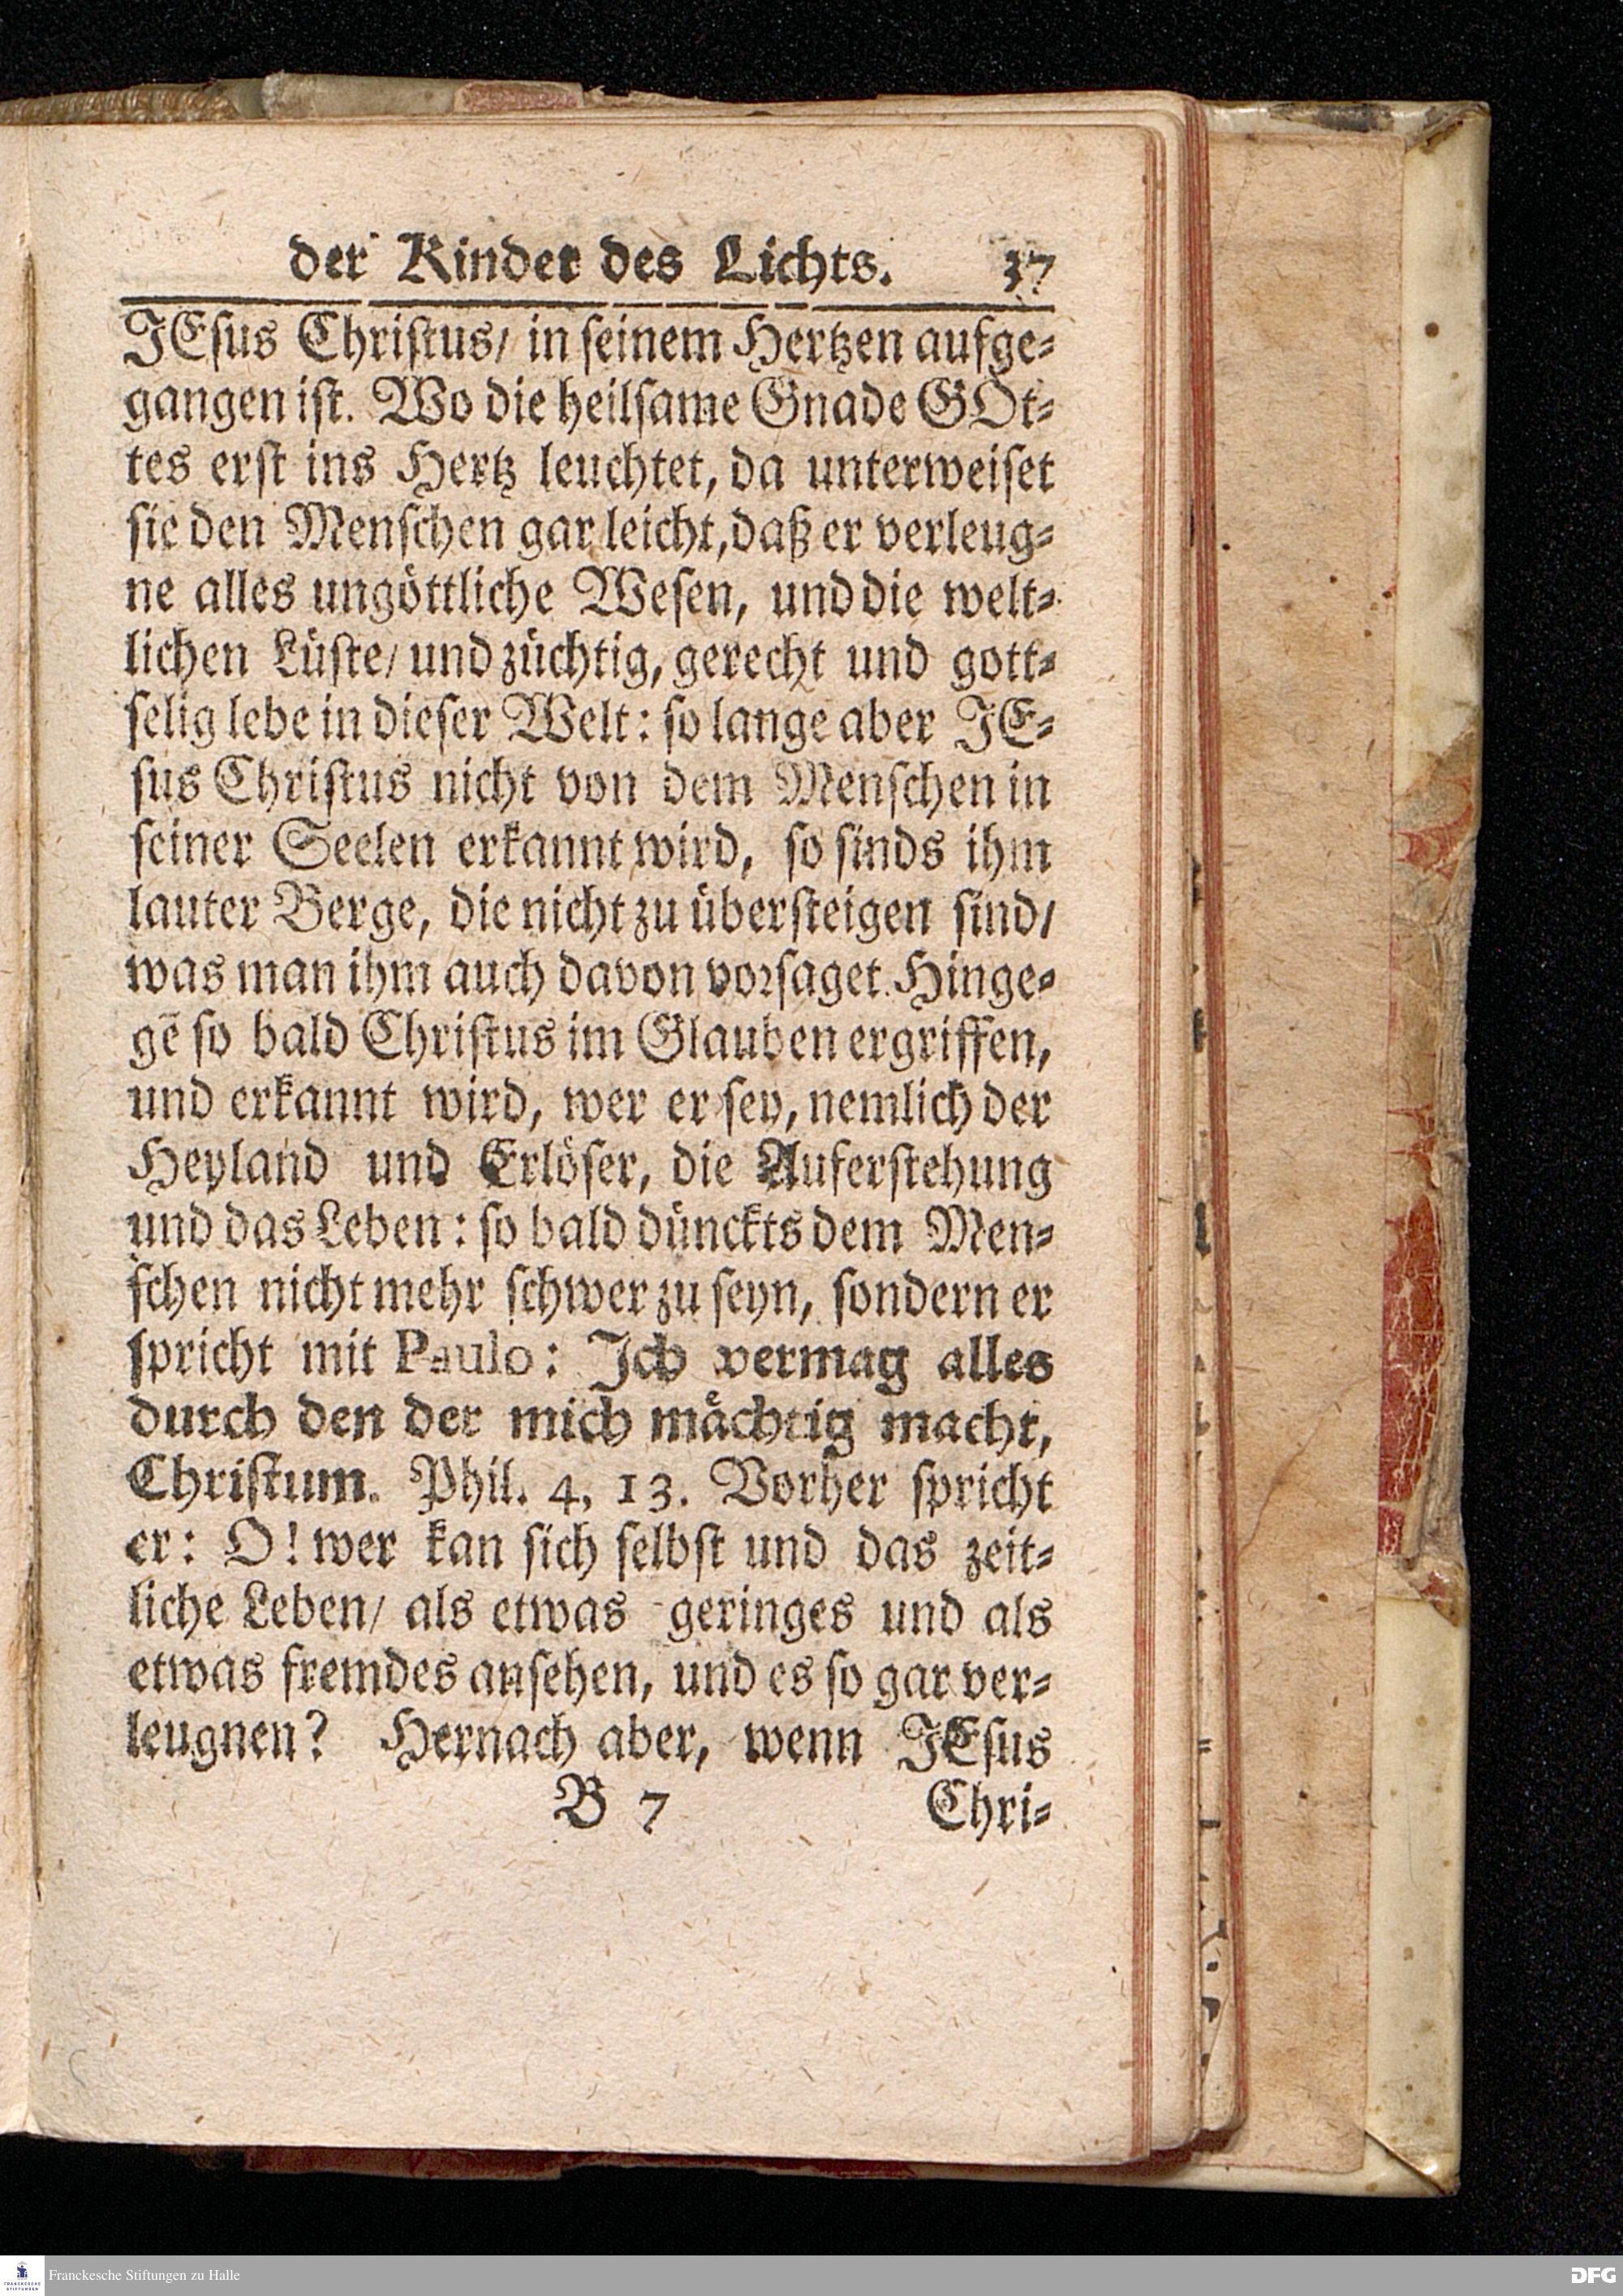 der Kinder des Lichts. 37
JEſus Chriſtus/ in ſeinem Hertzen aufge-
gangen iſt. Wo die heilſame Gnade GOt-
tes erſt ins Hertz leuchtet, da unterweiſet
ſie den Menſchen gar leicht, daß er verleug-
ne alles ungöttliche Weſen, und die welt-
lichen Lüſte/ und züchtig, gerecht und gott-
ſelig lebe in dieſer Welt: ſo lange aber JE-
ſus Chriſtus nicht von dem Menſchen in
ſeiner Seelen erkannt wird, ſo ſinds ihm
lauter Berge, die nicht zu überſteigen ſind/
was man ihm auch davon vorſaget. Hinge-
gē ſo bald Chriſtus im Glauben ergriffen,
und erkannt wird, wer er ſey, nemlich der
Heyland und Erlöſer, die Auferſtehung
und das Leben: ſo bald dünckts dem Men-
ſchen nicht mehr ſchwer zu ſeyn, ſondern er
ſpricht mit Paulo: Ich vermag alles
durch den der mich mächtig macht,
Chriſtum. Phil. 4, 13. Vorher ſpricht
er: O! wer kan ſich ſelbſt und das zeit-
liche Leben/ als etwas geringes und als
etwas fremdes anſehen, und es ſo gar ver-
leugnen? Hernach aber, wenn JEſus
B 7 Chri-
FRANCKESCHE STIFTUNGEN
Franckesche Stiftungen zu Halle
DFG